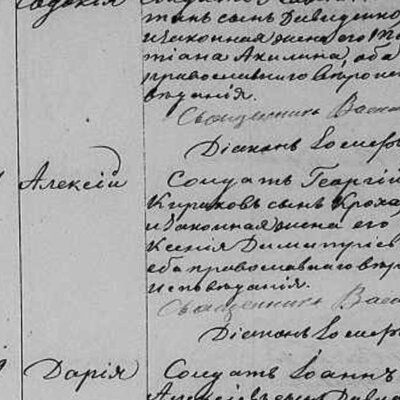 Евдокія
танъ сынъ Давиденко
и законная жена его
тіана Акилина, оба
православнаго вѣроис
вѣданія.
Священникъ Васи
Діаконъ
Алексій
Солдатъ Георгій
Кириловъ сынъ Кроха
и законная жена его
Ксенія Димитріе
оба православнаго вѣро
исповѣданія.
Священникъ Васи
Діаконъ
Дарія
Солдатъ Іоаннъ
Алексѣевъ сынъ